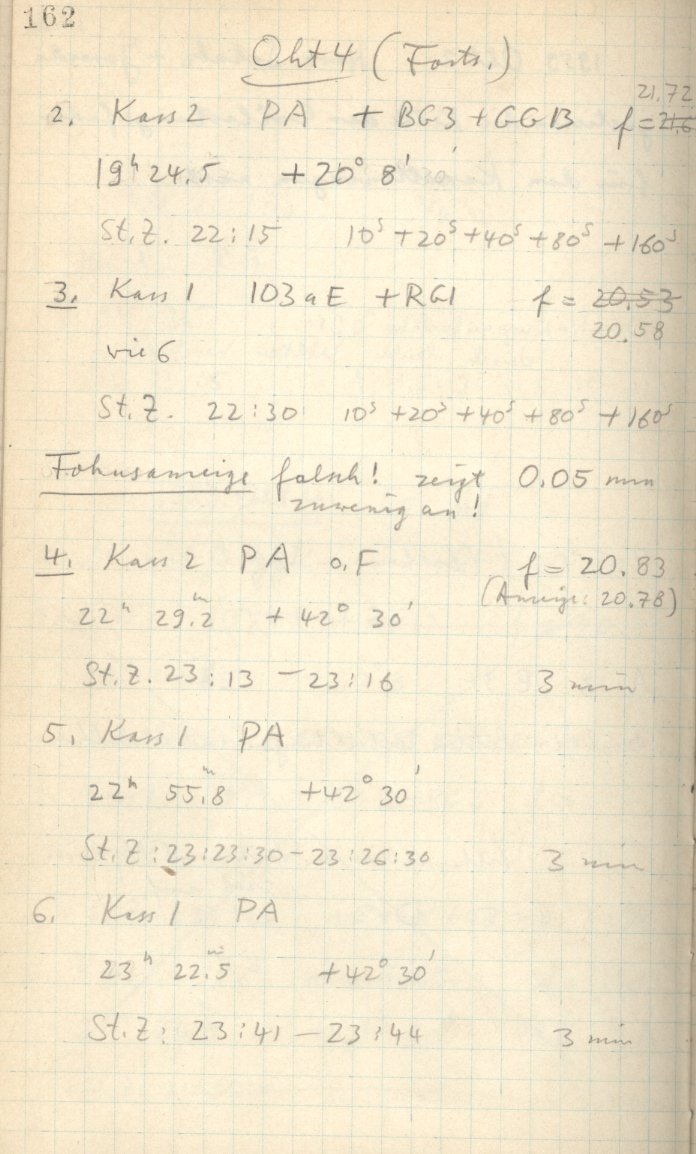 162
Okt 4 (Forts.)
21.72
2. Kass 2 PA + BG3 + GG13 f = 21,6
19h 24.5 +20° 8'
St.Z. 22:15 10s +20s +40s +80s +160s
3. Kass 1 103aE +RG1 f = 20.53
20.58
wie 6
St.Z. 22:30 10s +20s +40s +80s +160s
Fokusanzeige falsch! zeigt 0.05 mm
zuwenig an!
4. Kass 2 PA o.F f = 20.83
(Anzeige: 20.78)
22h 29.m2 +42° 30'
St.Z. 23:13 – 23:16 3 min
5. Kass 1 PA
22h 55.m8 +42° 30'
St.Z: 23:23:30 – 23:26:30 3 min
6. Kass 1 PA
23h 22.m5 +42° 30'
St.Z: 23:41 – 23:44 3 min